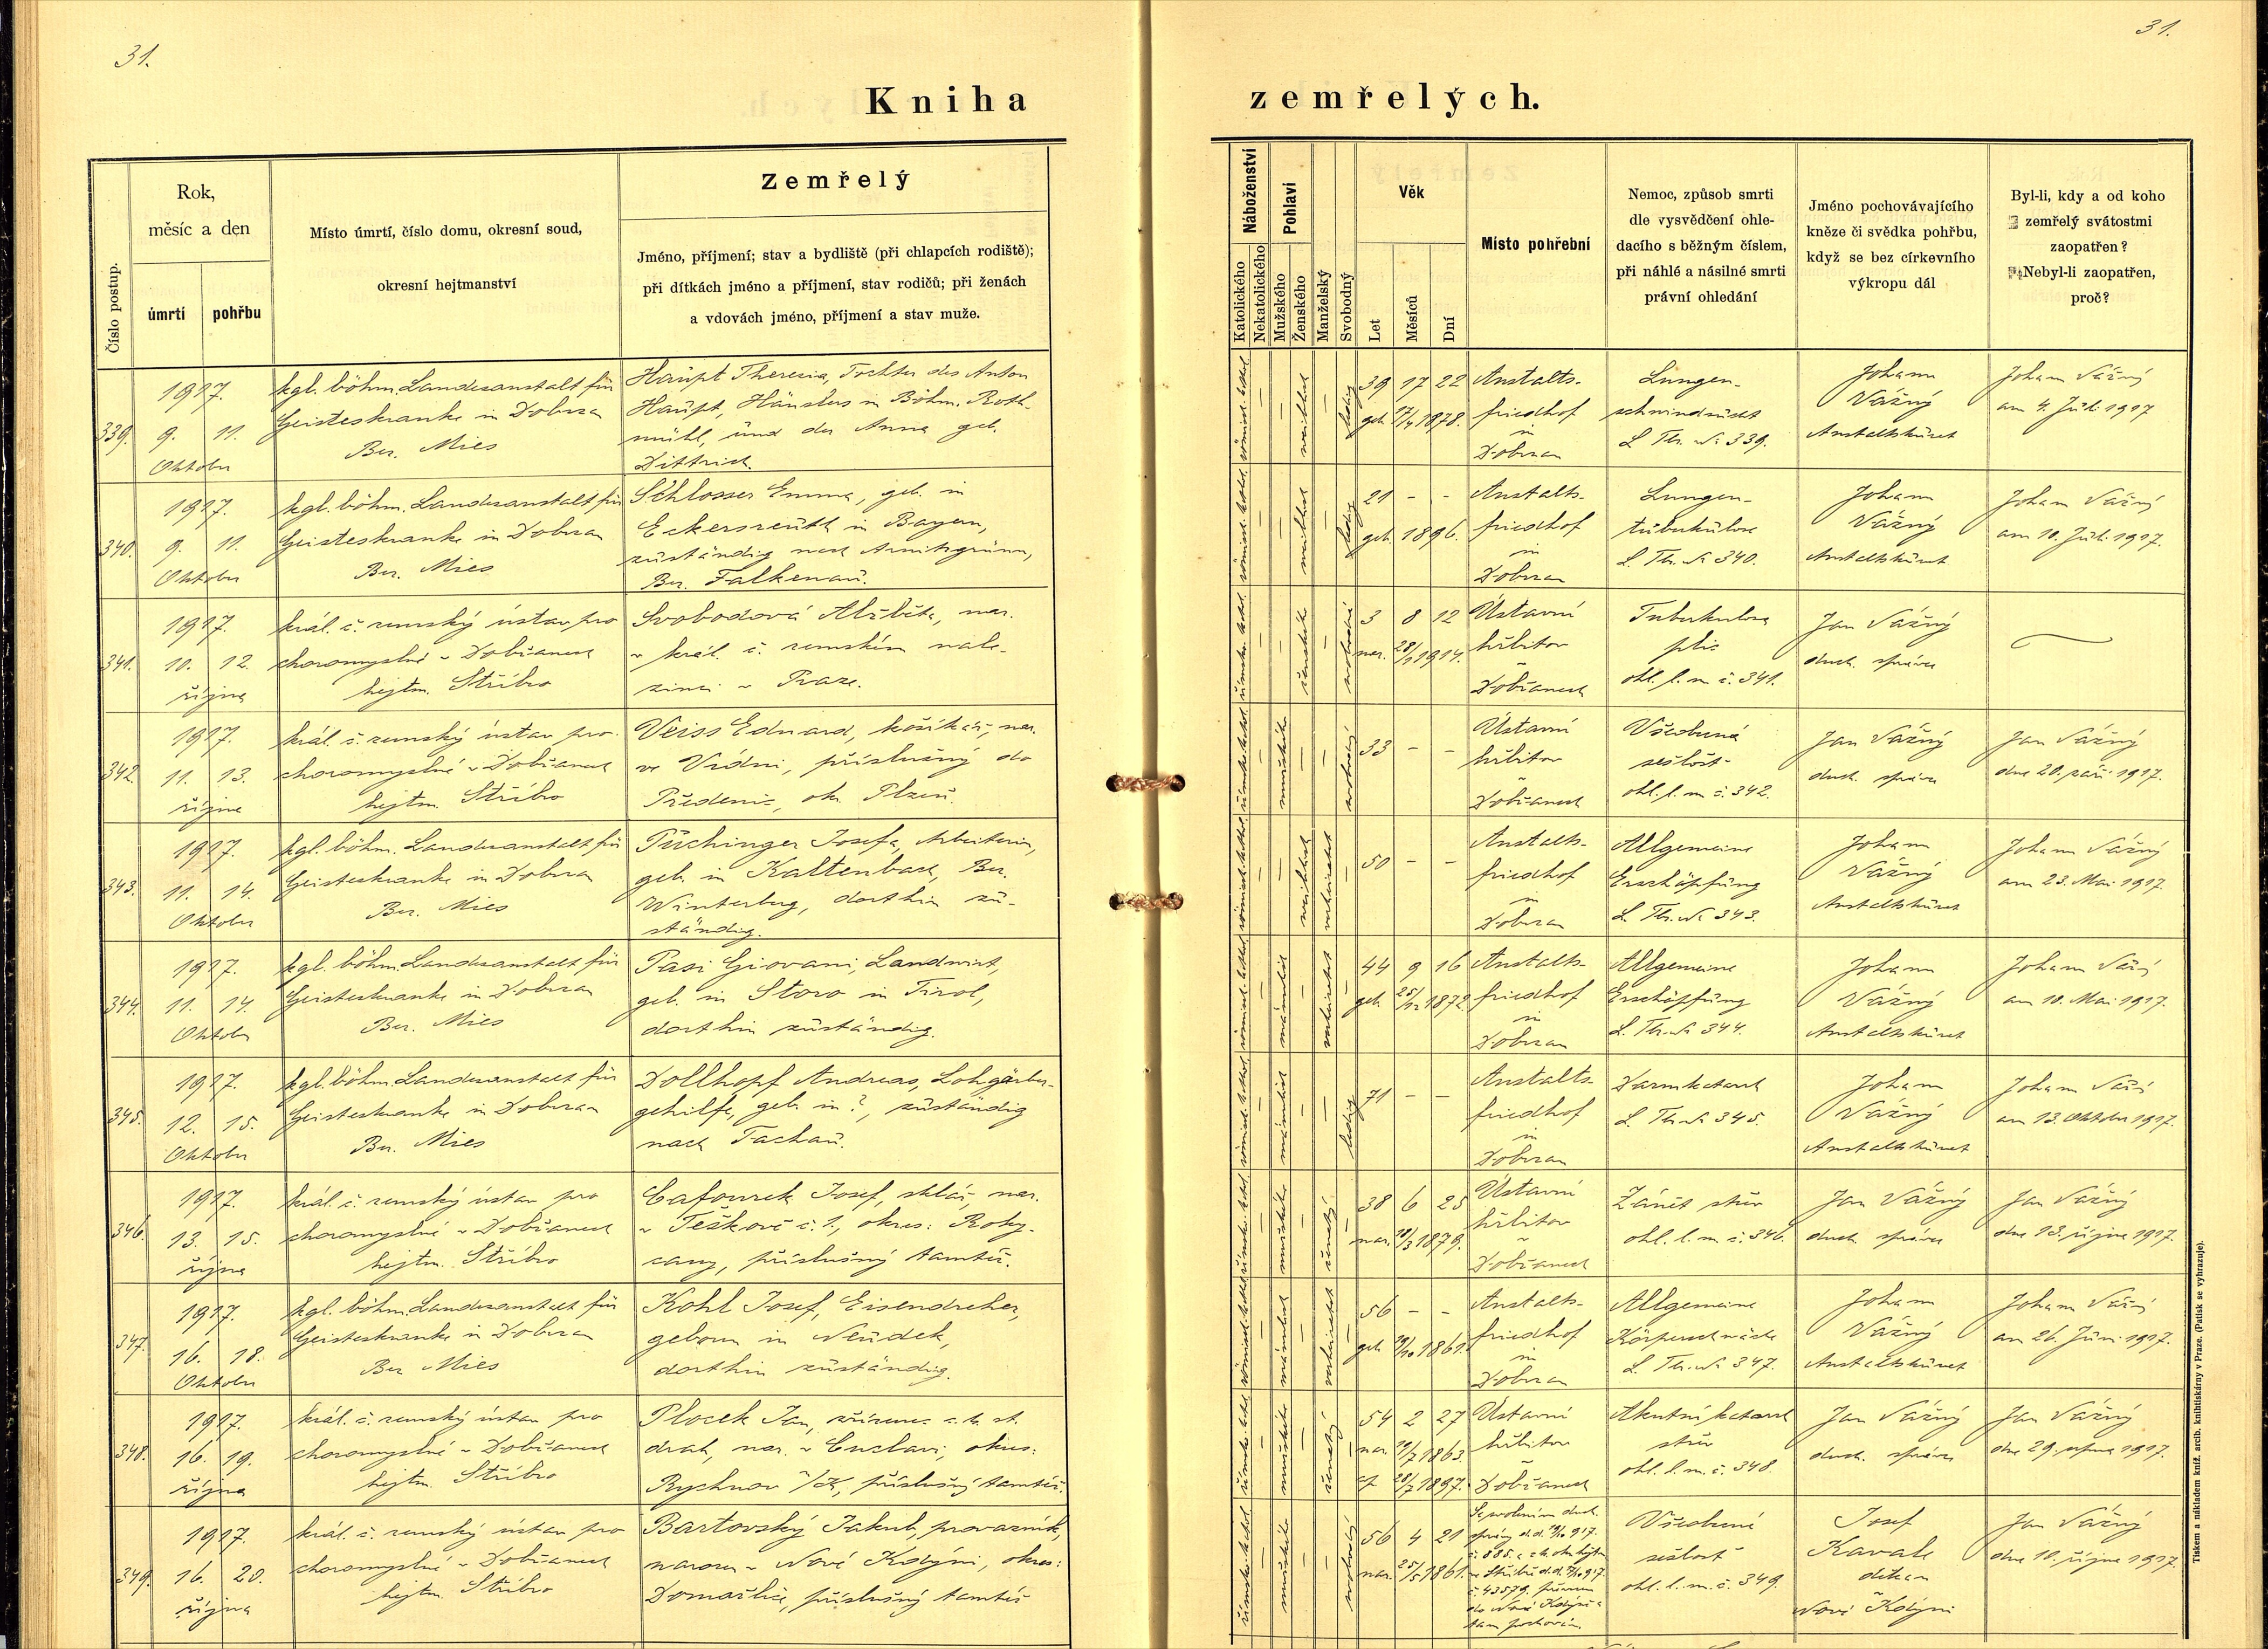 31.
31.
Kniha zemřelých.
Číslo postup.
Rok,
měsíc a den
úmrtí
pohřbu
Místo úmrtí, číslo domu, okresní soud,
okresní hejtmanství
Zemřelý
Jméno, příjmení; stav a bydliště (při chlapcích rodiště);
při dítkách jméno a příjmení, stav rodičů; při ženách
a vdovách jméno, příjmení a stav muže.
Náboženství
Katolického
Nekatolického
Pohlaví
Mužského
Ženského
Manželský
Svobodný
Věk
Let
Měsíců
Dní
Místo pohřební
Nemoc, způsob smrti
dle vysvědčení ohle-
dacího s běžným číslem,
při náhlé a násilné smrti
právní ohledání
Jméno pochovávajícího
kněze či svědka pohřbu,
když se bez církevního
výkropu dál
Byl-li, kdy a od koho
zemřelý svátostmi
zaopatřen?
Nebyl-li zaopatřen,
proč?
339.
1917.
9. 11.
Oktober
kgl. böhm. Landesanstalt für
Geisteskranke in Dobrzan
Bez. Mies
Haupt Theresia, Tochter des Anton
Haupt, Häuslers in Böhm. Roth-
mühl, und der Anna geb.
Dittrich.
römisch-kathol.
weiblich
ledig
39 17 22
geb. 17/4 1878.
Anstalts-
friedhof
in
Dobrzan
Lungen-
schwindsucht
L. Tb. № 339.
Johann
Vážný
Anstaltskurat
Johann Vážný
am 4. Juli 1917
340.
1917.
9. 11.
Oktober
kgl. böhm. Landesanstalt für
Geisteskranke in Dobrzan
Bez. Mies
Schlosser Emma, geb. in
Eckersreuth in Bayern,
zuständig nach Arnitzgrün,
Bez. Falkenau.
römisch-kathol.
weiblich
ledig
21 - -
geb. 1896.
Anstalts-
friedhof
in
Dobrzan
Lungen-
tuberkulose
L. Tb. № 340.
Johann
Vážný
Anstaltskurat
Johann Vážný
am 10. Juli 1917.
341.
1917.
10. 12.
října
král. č. zemský ústav pro
choromyslné v Dobřanech
hejtm. Stříbro
Svobodová Alžběta, nar.
v král. č. zemském nale-
zinci v Praze.
římsko-kathol.
ženského
svobodná
3 8 12
nar. 28/1 1914.
Ústavní
hřbitov
v
Dobřanech
Tuberkulosa
plic
ohl. l. m. č. 341.
Jan Vážný
duch. správce
342.
1917.
11. 13.
října
král. č. zemský ústav pro
choromyslné v Dobřanech
hejtm. Stříbro
Veiss Eduard, košíkář, nar.
ve Vídni, příslušný do
Předenic, okr. Plzeň.
římsko-kathol.
mužského
svobodný
33 - -
Ústavní
hřbitov
v
Dobřanech
Všeobecná
sešlost
ohl. l. m. č. 342.
Jan Vážný
duch. správce
Jan Vážný
dne 20. září 1917.
343.
1917.
11. 14.
Oktober
kgl. böhm. Landesanstalt für
Geisteskranke in Dobrzan
Bez. Mies
Puchinger Josefa, Arbeiterin,
geb. in Kaltenbach, Bez.
Winterberg, dorthin zu-
ständig.
römisch-kathol.
weiblich
verheiratet
50 - -
Anstalts-
friedhof
in
Dobrzan
Allgemeine
Erschöpfung
L. Tb. № 343.
Johann
Vážný
Anstaltskurat
Johann Vážný
am 23. Mai 1917.
344.
1917.
11. 14.
Oktober
kgl. böhm. Landesanstalt für
Geisteskranke in Dobrzan
Bez. Mies
Pasi Giovani, Landwirt,
geb. in Storo in Tirol,
dorthin zuständig.
römisch-kathol.
männlich
verheiratet
44 9 16
geb. 25/12 1872
Anstalts-
friedhof
in
Dobrzan
Allgemeine
Erschöpfung
L. Tb. № 344.
Johann
Vážný
Anstaltskurat
Johann Vážný
am 10. Mai 1917.
345.
1917.
12. 15.
Oktober
kgl. böhm. Landesanstalt für
Geisteskranke in Dobrzan
Bez. Mies
Dollhopf Andreas, Lohgärber-
gehilfe, geb. in ?, zuständig
nach Tachau.
römisch-kathol.
männlich
ledig
71 - -
Anstalts-
friedhof
in
Dobrzan
Darmkatarrh
L. Tb. № 345.
Johann
Vážný
Anstaltskurat
Johann Vážný
am 13. Oktober 1917.
346.
1917.
13. 15.
října
král. č. zemský ústav pro
choromyslné v Dobřanech
hejtm. Stříbro
Cafourek Josef, sklář, nar.
v Těškově č. 1., okres: Roky-
cany, příslušný tamtéž.
římsko-kathol.
mužského
ženatý
38 6 25
nar. 18/3 1879.
Ústavní
hřbitov
v
Dobřanech
Zánět střev
ohl. l. m. č. 346.
Jan Vážný
duch. správce
Jan Vážný
dne 13. října 1917.
347.
1917.
16. 18.
Oktober
kgl. böhm. Landesanstalt für
Geisteskranke in Dobrzan
Bez. Mies
Kohl Josef, Eisendreher,
geboren in Neudek,
dorthin zuständig.
römisch-kathol.
männlich
verheiratet
56 - -
geb. 1861.
Anstalts-
friedhof
in
Dobrzan
Allgemeine
Körperschwäche
L. Tb. № 347.
Johann
Vážný
Anstaltskurat
Johann Vážný
am 26. Juni 1917.
348.
1917.
16. 19.
října
král. č. zemský ústav pro
choromyslné v Dobřanech
hejtm. Stříbro
Plocek Jan, zřízenec c. k. st.
drah, nar. v okres:
Rychnov n/K, příslušný tamtéž.
římsko-kathol.
mužského
ženatý
54 2 27
nar. 19/7 1863.
28/7 1897.
Ústavní
hřbitov
v
Dobřanech
Akutní katarrh
střev
ohl. l. m. č. 348.
Jan Vážný
duch. správce
Jan Vážný
dne 29. srpna 1917.
349.
1917.
16. 20.
října
král. č. zemský ústav pro
choromyslné v Dobřanech
hejtm. Stříbro
Bartovský Jakub, provazník,
narozen v Nové Kdýni, okres:
Domažlice, příslušný tamtéž
římsko-kathol.
mužského
svobodný
56 4 21
nar. 25/5 1861.
S povolením duch.
správy d.d. 19/10 917.
č. 585. a c. k. okr. hejtm.
v Stříbře d.d. 917
č. 43579. převezen
do Nové Kdýně a
tam pochován.
Všeobecná
sešlost
ohl. l. m. č. 349.
Josef
Kavale
děkan
Nová Kdýni
Jan Vážný
dne 10. října 1917.
Tiskem a nákladem kníž. arcib. knihtiskárny v Praze. (Patisk se vyhrazuje).